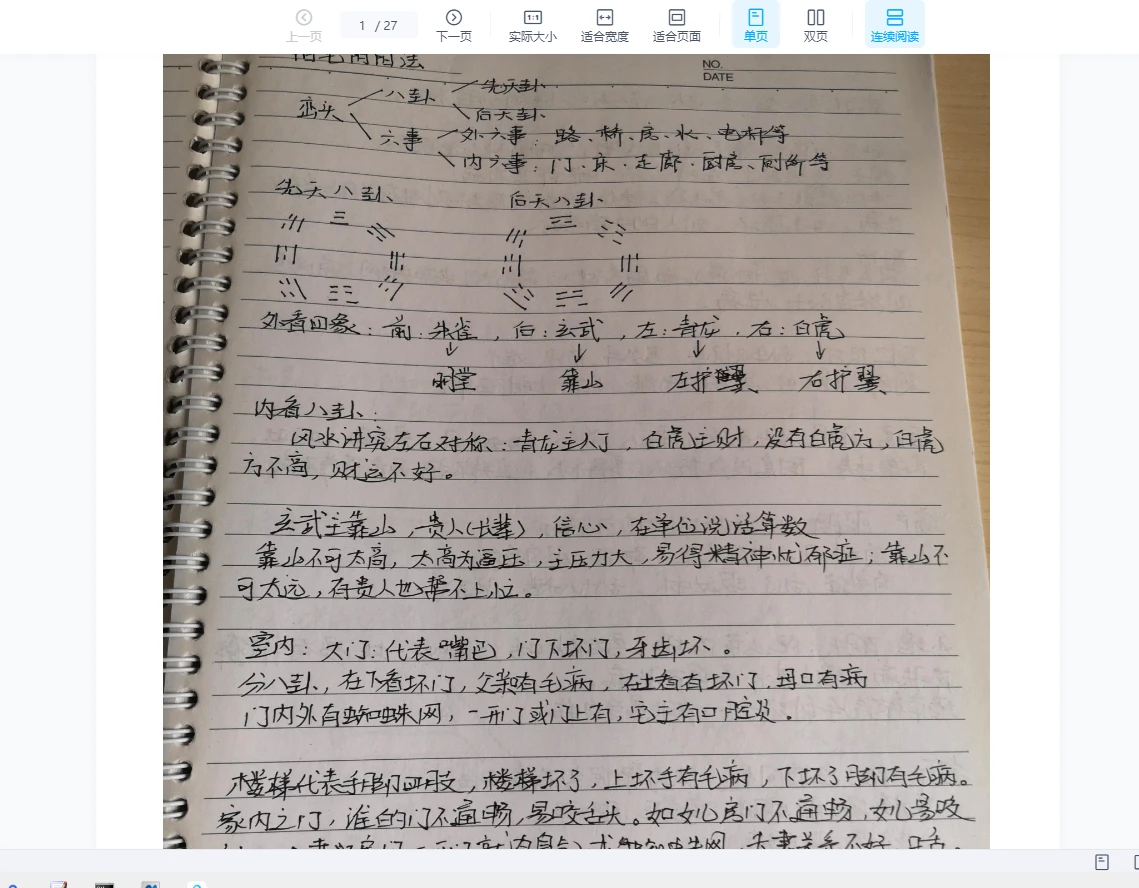 上一页
1 / 27
下一页
实际大小
适合宽度
适合页面
单页
双页
连续阅读
NO.
DATE
峦头
八卦
先天卦
后天卦
六事
外六事：路、桥、房、水、电杆等
内六事：门、床、走廊、厨房、厕所等
先天八卦
后天八卦
外看四象：前：朱雀，后：玄武，左：青龙，右：白虎
明堂 靠山 左护翼 右护翼
内看八卦：
风水讲究左右对称：青龙主人丁，白虎主财，没有白虎方，白虎
方不高，财运不好。
玄武主靠山，贵人(长辈)，信心，在单位说话算数
靠山不可太高，太高为逼压，主压力大，易得精神忧郁症；靠山不
可太远，有贵人也帮不上忙。
室内：大门：代表嘴巴，门下坏门，牙齿坏。
分八卦，在下看坏门，父亲有毛病，在 看有坏门，母口有病
门内外有蜘蛛网，一开门或门上有，宅主有口腔炎。
楼梯代表手脚四肢，楼梯坏了，上坏手有毛病，下坏了脚有毛病。
家内之门，谁的门不通畅，易咬舌头。如女儿房门不通畅，女儿易咬
蜘蛛网，夫妻关系不好，口舌。